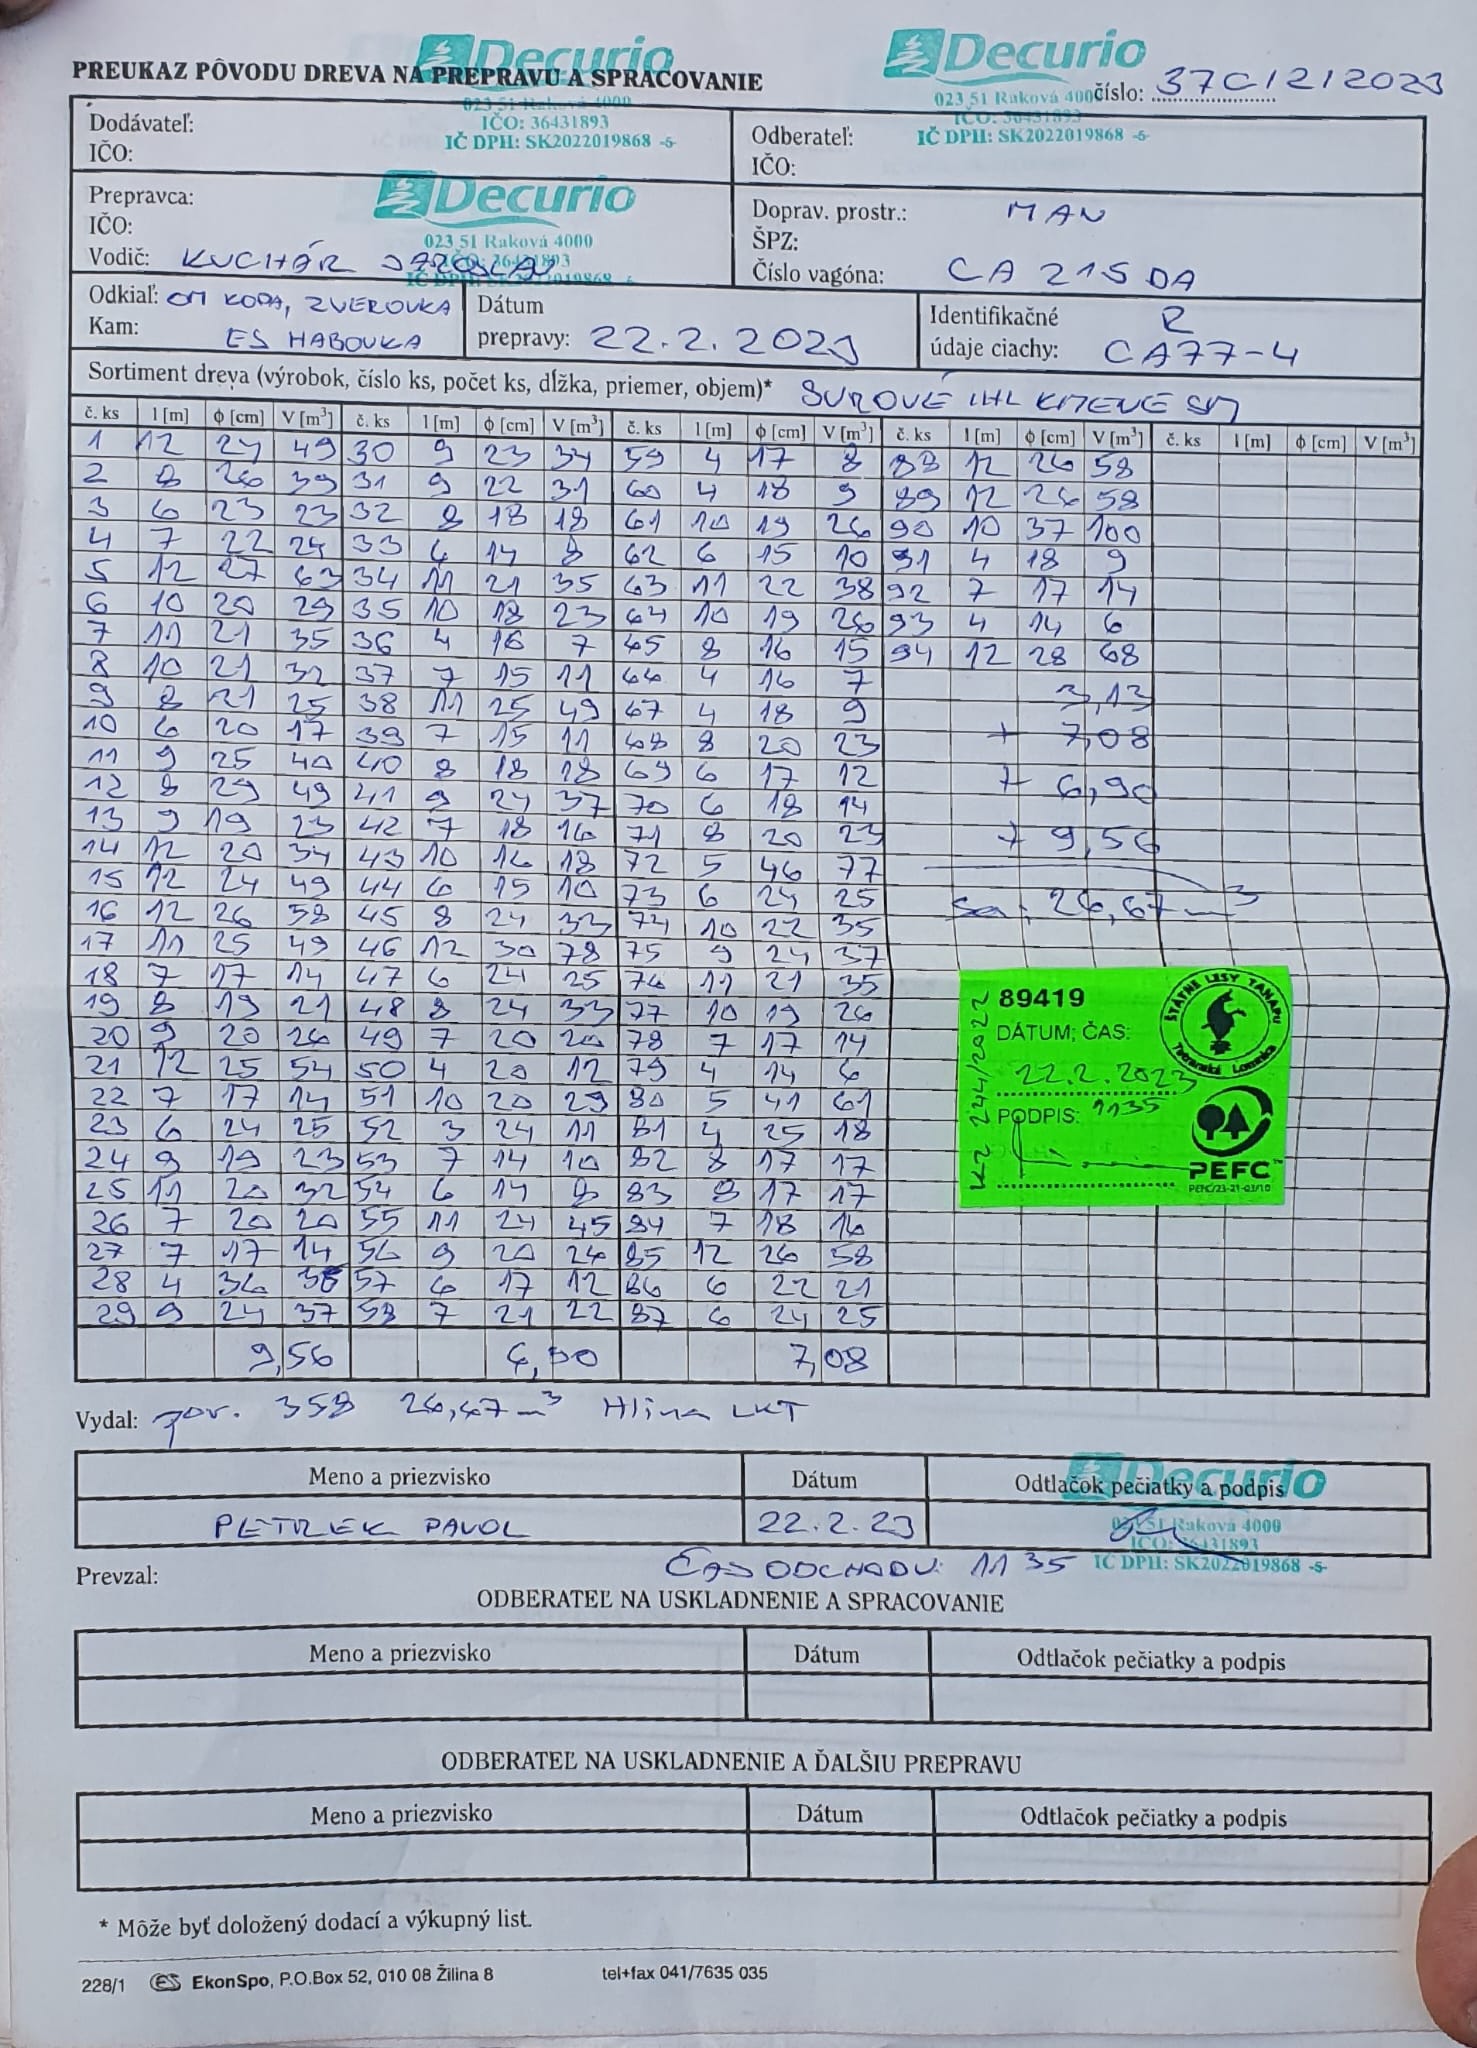 Decurio
Decurio
PREUKAZ PÔVODU DREVA NA PREPRAVU A SPRACOVANIE
023 51 Raková 4000
023 51 Raková 400
číslo: 37C/2/2023
Dodávateľ:
IČO: 36431893
IČO: 36431893
IČO:
IČ DPH: SK2022019868 -5-
Odberateľ:
IČ DPH: SK2022019868 -5-
IČO:
Prepravca:
Decurio
IČO:
023 51 Raková 4000
Vodič: KUCHÁR JAROSLAV
IČO: 36431893
IČ DPH: SK2022019868 -5-
Doprav. prostr.: MAN
ŠPZ:
Číslo vagóna: CA 215 DA
Odkiaľ: OM KOPA, ZVEROVKA
Kam: ES HABOVKA
Dátum
prepravy: 22.2.2023
Identifikačné R
údaje ciachy: CA77-4
Sortiment dreva (výrobok, číslo ks, počet ks, dĺžka, priemer, objem)* SUROVÉ IHL KMENE SM
č. ks l [m] ϕ [cm] V [m³] č. ks l [m] ϕ [cm] V [m³] č. ks l [m] ϕ [cm] V [m³] č. ks l [m] ϕ [cm] V [m³] č. ks l [m] ϕ [cm] V [m³]
1 12 24 49 30 9 23 34 59 4 17 8 88 12 26 58
2 8 26 39 31 9 22 31 60 4 18 9 89 12 26 58
3 6 23 23 32 8 18 18 61 10 19 26 90 10 37 100
4 7 22 24 33 6 14 8 62 6 15 10 91 4 18 9
5 12 27 63 34 11 21 35 63 11 22 38 92 7 17 14
6 10 20 29 35 10 18 23 64 10 19 26 93 4 14 6
7 11 21 35 36 4 16 7 65 8 16 15 94 12 28 68
8 10 21 32 37 7 15 11 66 4 16 7 3,13
9 8 21 25 38 11 25 49 67 4 18 9
10 6 20 17 39 7 15 11 68 8 20 23 + 7,08
11 9 25 40 40 8 18 18 69 6 17 12 + 6,90
12 8 29 49 41 9 24 37 70 6 18 14
13 9 19 23 42 7 18 16 71 8 20 23 + 9,56
14 12 20 34 43 10 16 18 72 5 46 77
15 12 24 49 44 6 15 10 73 6 24 25 Sa: 26,67 m³
16 12 26 58 45 8 24 33 74 10 22 35
17 11 25 49 46 12 30 78 75 9 24 37
18 7 17 14 47 6 24 25 76 11 21 35
19 8 19 21 48 8 24 33 77 10 19 26
20 9 20 26 49 7 20 20 78 7 17 14
21 12 25 54 50 4 20 12 79 4 14 6
22 7 17 14 51 10 20 29 80 5 41 61
23 6 24 25 52 3 24 11 81 4 25 18
24 9 19 23 53 7 14 10 82 8 17 17
25 11 20 32 54 6 14 8 83 8 17 17
26 7 20 20 55 11 24 45 84 7 18 16
27 7 17 14 56 9 20 26 85 12 26 58
28 4 36 38 57 6 17 12 86 6 22 21
29 9 24 37 58 7 21 22 87 6 24 25
9,56 6,90 7,08
89419
ŠTÁTNE LESY TANAPU
Tatranská Lomnica
DÁTUM; ČAS:
22.2.2023
PODPIS: 1135
KZ 244/2022
PEFC™
PEFC/23-21-03/10
Vydal: por. 358 26,67 m³ Hlina LKT
Meno a priezvisko Dátum Odtlačok pečiatky a podpis
Decurio
PETREK PAVOL 22.2.23
023 51 Raková 4000
IČO: 36431893
IČ DPH: SK2022019868 -5-
Prevzal: ČAS ODCHODU: 11 35
ODBERATEĽ NA USKLADNENIE A SPRACOVANIE
Meno a priezvisko Dátum Odtlačok pečiatky a podpis
ODBERATEĽ NA USKLADNENIE A ĎALŠIU PREPRAVU
Meno a priezvisko Dátum Odtlačok pečiatky a podpis
* Môže byť doložený dodací a výkupný list.
228/1 ES EkonSpo, P.O.Box 52, 010 08 Žilina 8 tel+fax 041/7635 035